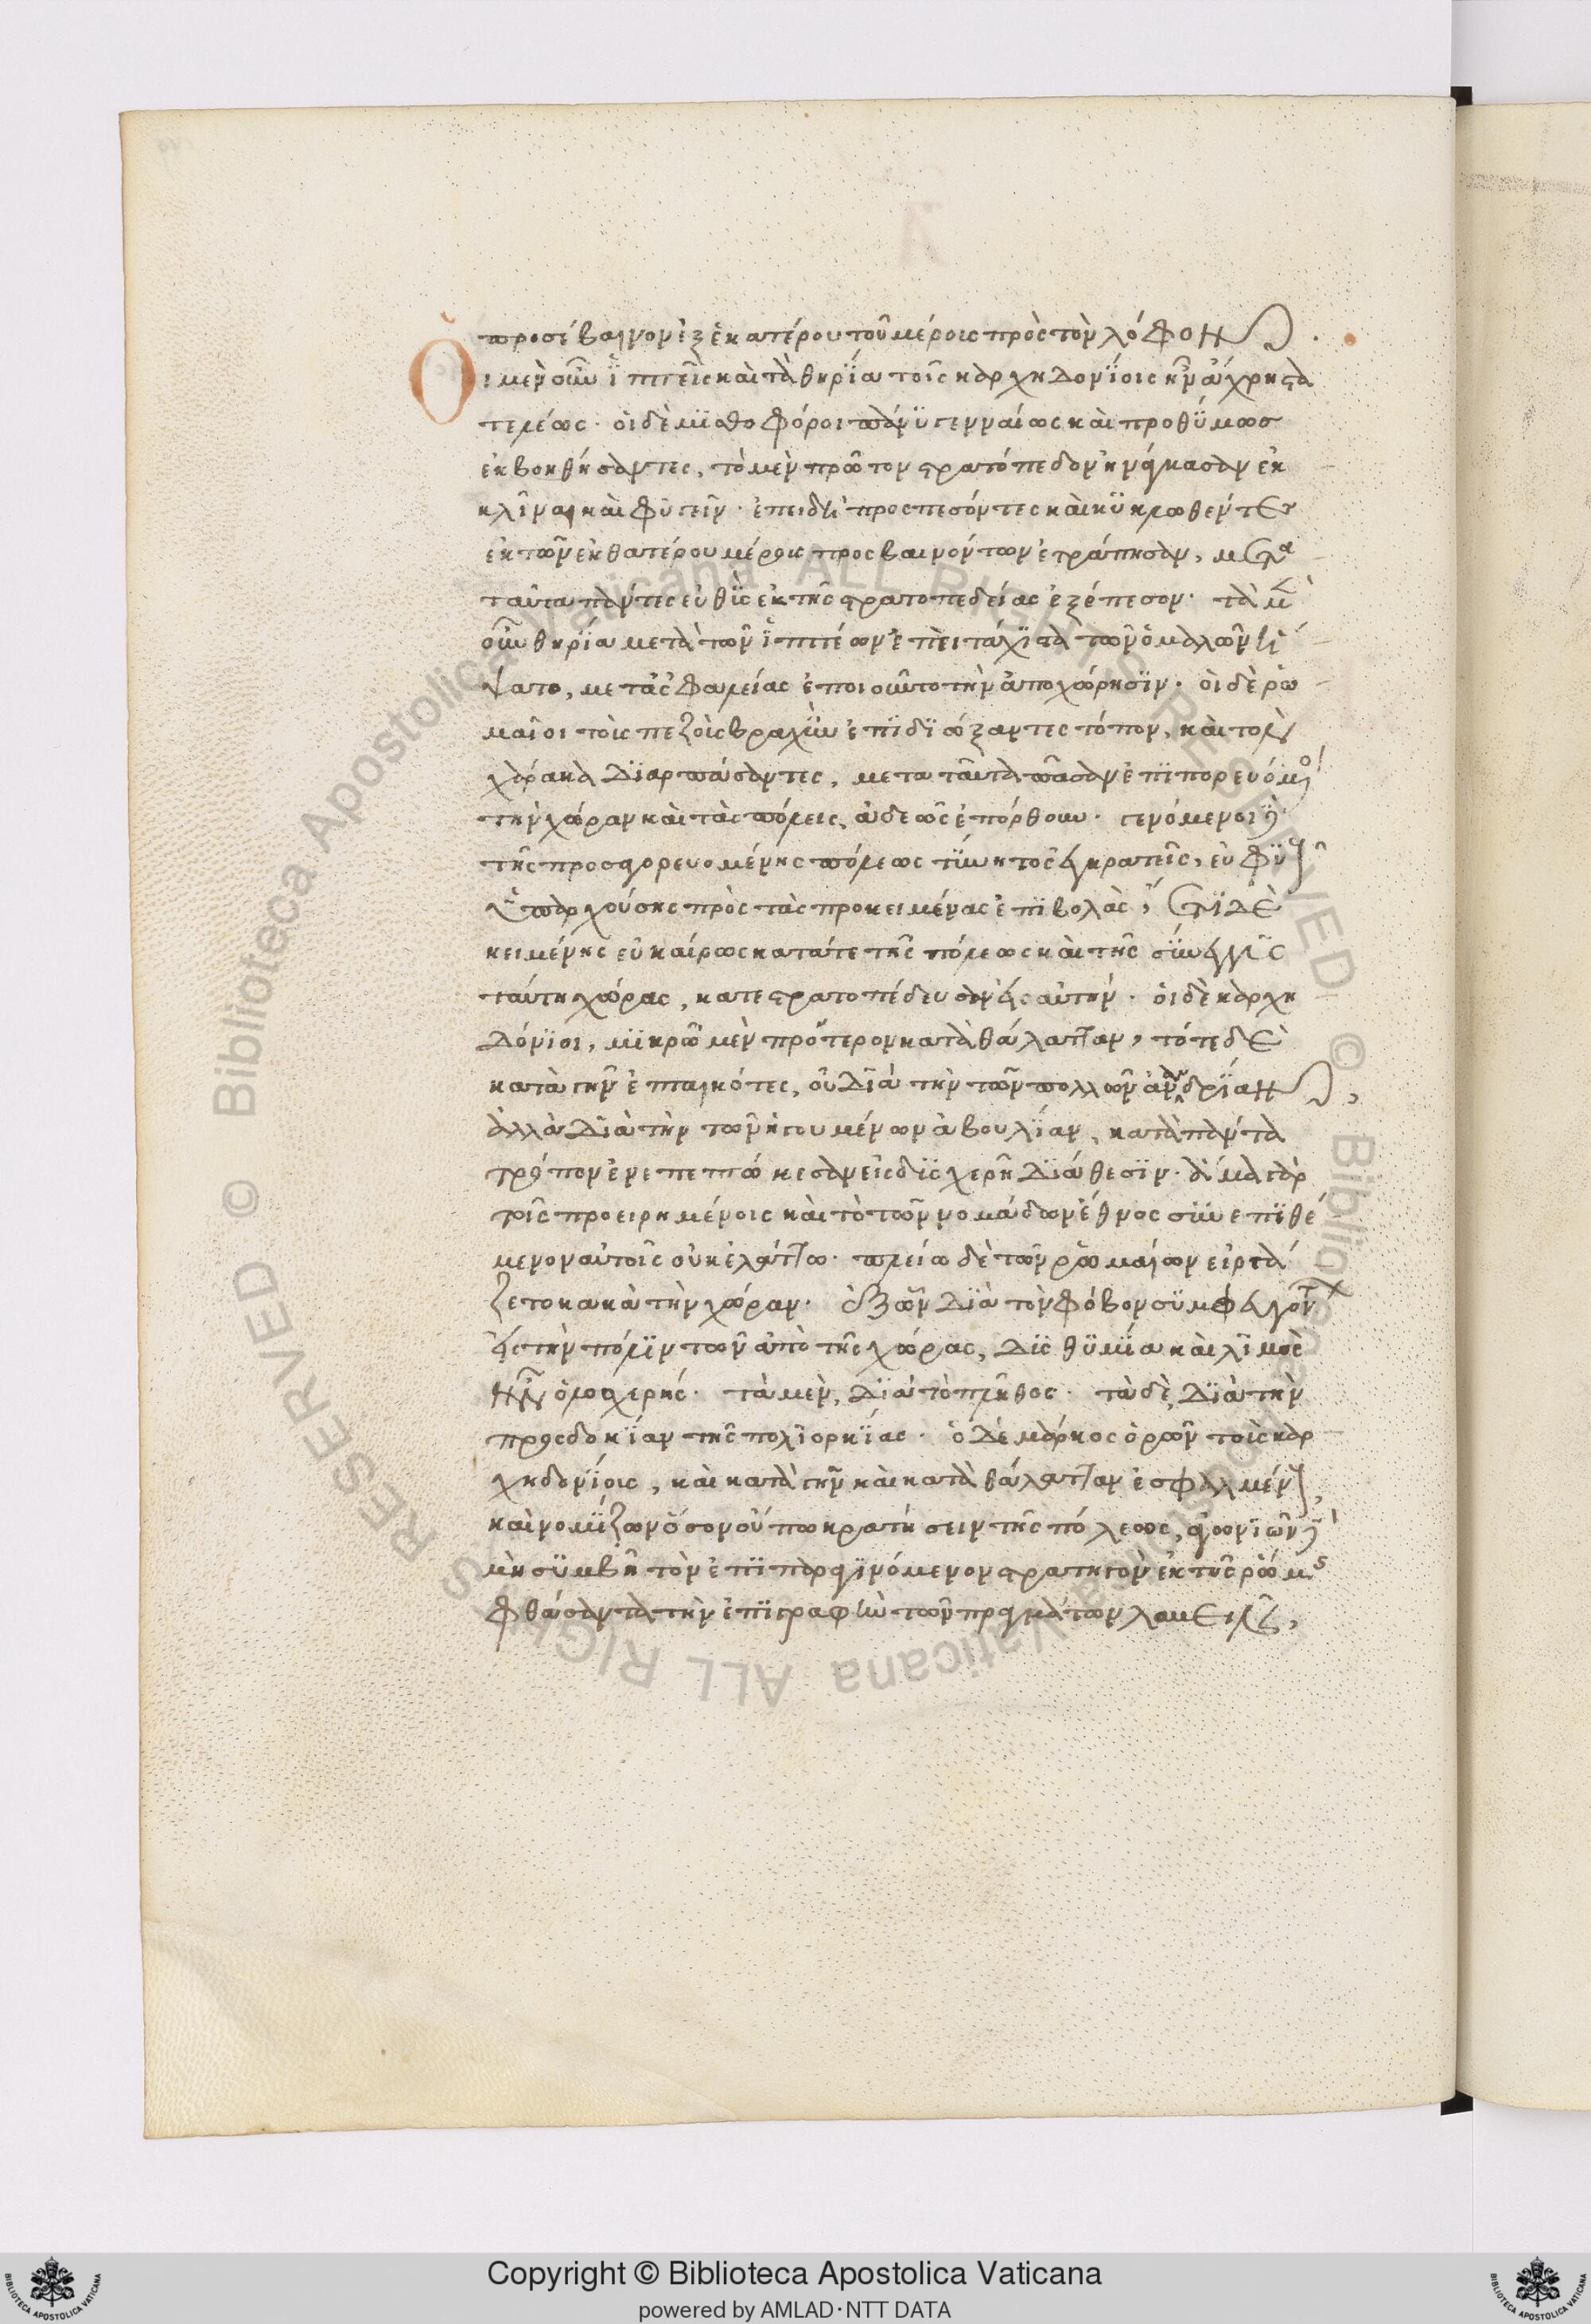 προσέβαινον ἐξ ἑκατέρου τοῦ μέρους πρὸς τὸν λόφον.
Οἱ μὲν οὖν ἱππεῖς καὶ τὰ θηρία τοῖς καρχηδονίοις ἦν ἄχρηστα
τελέως. οἱ δὲ μισθοφόροι πάνυ γενναίως καὶ προθύμωσ
ἐκβοηθήσαντες, τὸ μὲν πρῶτον στρατόπεδον ἠνάγκασαν ἐκ
κλῖναι καὶ φυγεῖν. ἐπειδὴ προσπεσόντες καὶ κυκλωθέντες
ἐκ τῶν ἐκ θατέρου μέρους προσβαινόντων ἐτράπησαν, μετὰ
ταῦτα πάντες εὐθὺς ἐκ τῆς στρατοπεδείας ἐξέπεσον. τὰ μὲν
οὖν θηρία μετὰ τῶν ἱππέων ἐπεὶ τάχιστα τῶν ὁμαλῶν ἥ
ψατο, μετ' ἀσφαλείας ἐποιοῦντο τὴν ἀποχώρησιν. οἱ δὲ ρω
μαῖοι τοὺς πεζοὺς βραχὺν ἐπιδιώξαντες τόπον, καὶ τὸν
χάρακα διαρπάσαντες, μετα ταῦτα πᾶσαν ἐπιπορευόμενοι
τὴν χώραν καὶ τὰς πόλεις, ἀδεῶς ἐπόρθουν. γενόμενοι δὲ
τῆς προσαγορευομένης πόλεως τύνητος ἐγκρατεῖς, εὐφυοῦς
ὑπαρχούσης πρὸς τὰς προκειμένας ἐπιβολὰς, ἔτι δὲ
κειμένης εὐκαίρως κατά τε τῆς πόλεως καὶ τῆς σύνεγγυς
ταύτη χώρας, κατεστρατοπέδευσαν εἰς αὐτήν. οἱ δὲ καρχη
δόνιοι, μικρῷ μὲν πρότερον κατὰ θάλατταν, τότε δὲ
κατὰ γῆν ἐπταικότες, οὐ διὰ τὴν τῶν πολλῶν ἀνανδρίαν,
ἀλλὰ διὰ τὴν τῶν ἡγουμένων ἀβουλίαν, κατὰ πάντα
τρόπον ἐνεπεπτώκεσαν εἰς δυσχερῆ διάθεσιν. ἅμα γὰρ
τοῖς προειρημένοις καὶ τὸ τῶν νομάδων ἔθνος συνεπιθέ
μενον αὐτοῖς οὐκ ἐλάττω. πλείω δὲ τῶν ρωμαίων εἰργά
ζετο κακὰ τὴν χώραν. ἐξ ὧν διὰ τὸν φόβον συμφευγόντων
εἰς τὴν πόλιν τῶν ἀπὸ τῆς χώρας, δυσθυμία καὶ λιμὸς
ἦν ὁλοσχερής. τὰ μὲν, διὰ τὸ πλῆθος. τὰ δὲ, διὰ τὴν
προσδοκίαν τῆς πολιορκίας. ὁ δὲ μάρκος ὁρῶν τοὺς καρ
χηδονίους, καὶ κατὰ γῆν καὶ κατὰ θάλατταν ἐσφαλμένους,
καὶ νομίζων ὅσον οὔπω κρατήσειν τῆς πόλεως, ἀγωνιῶν δὲ
μὴ συμβῆ τὸν ἐπιπαραγινόμενον στρατηγὸν ἐκ τῆς ρώμης
φθάσαντα τὴν ἐπιγραφὴν τῶν πραγμάτων λαβεῖν,
Copyright © Biblioteca Apostolica Vaticana
powered by AMLAD·NTT DATA